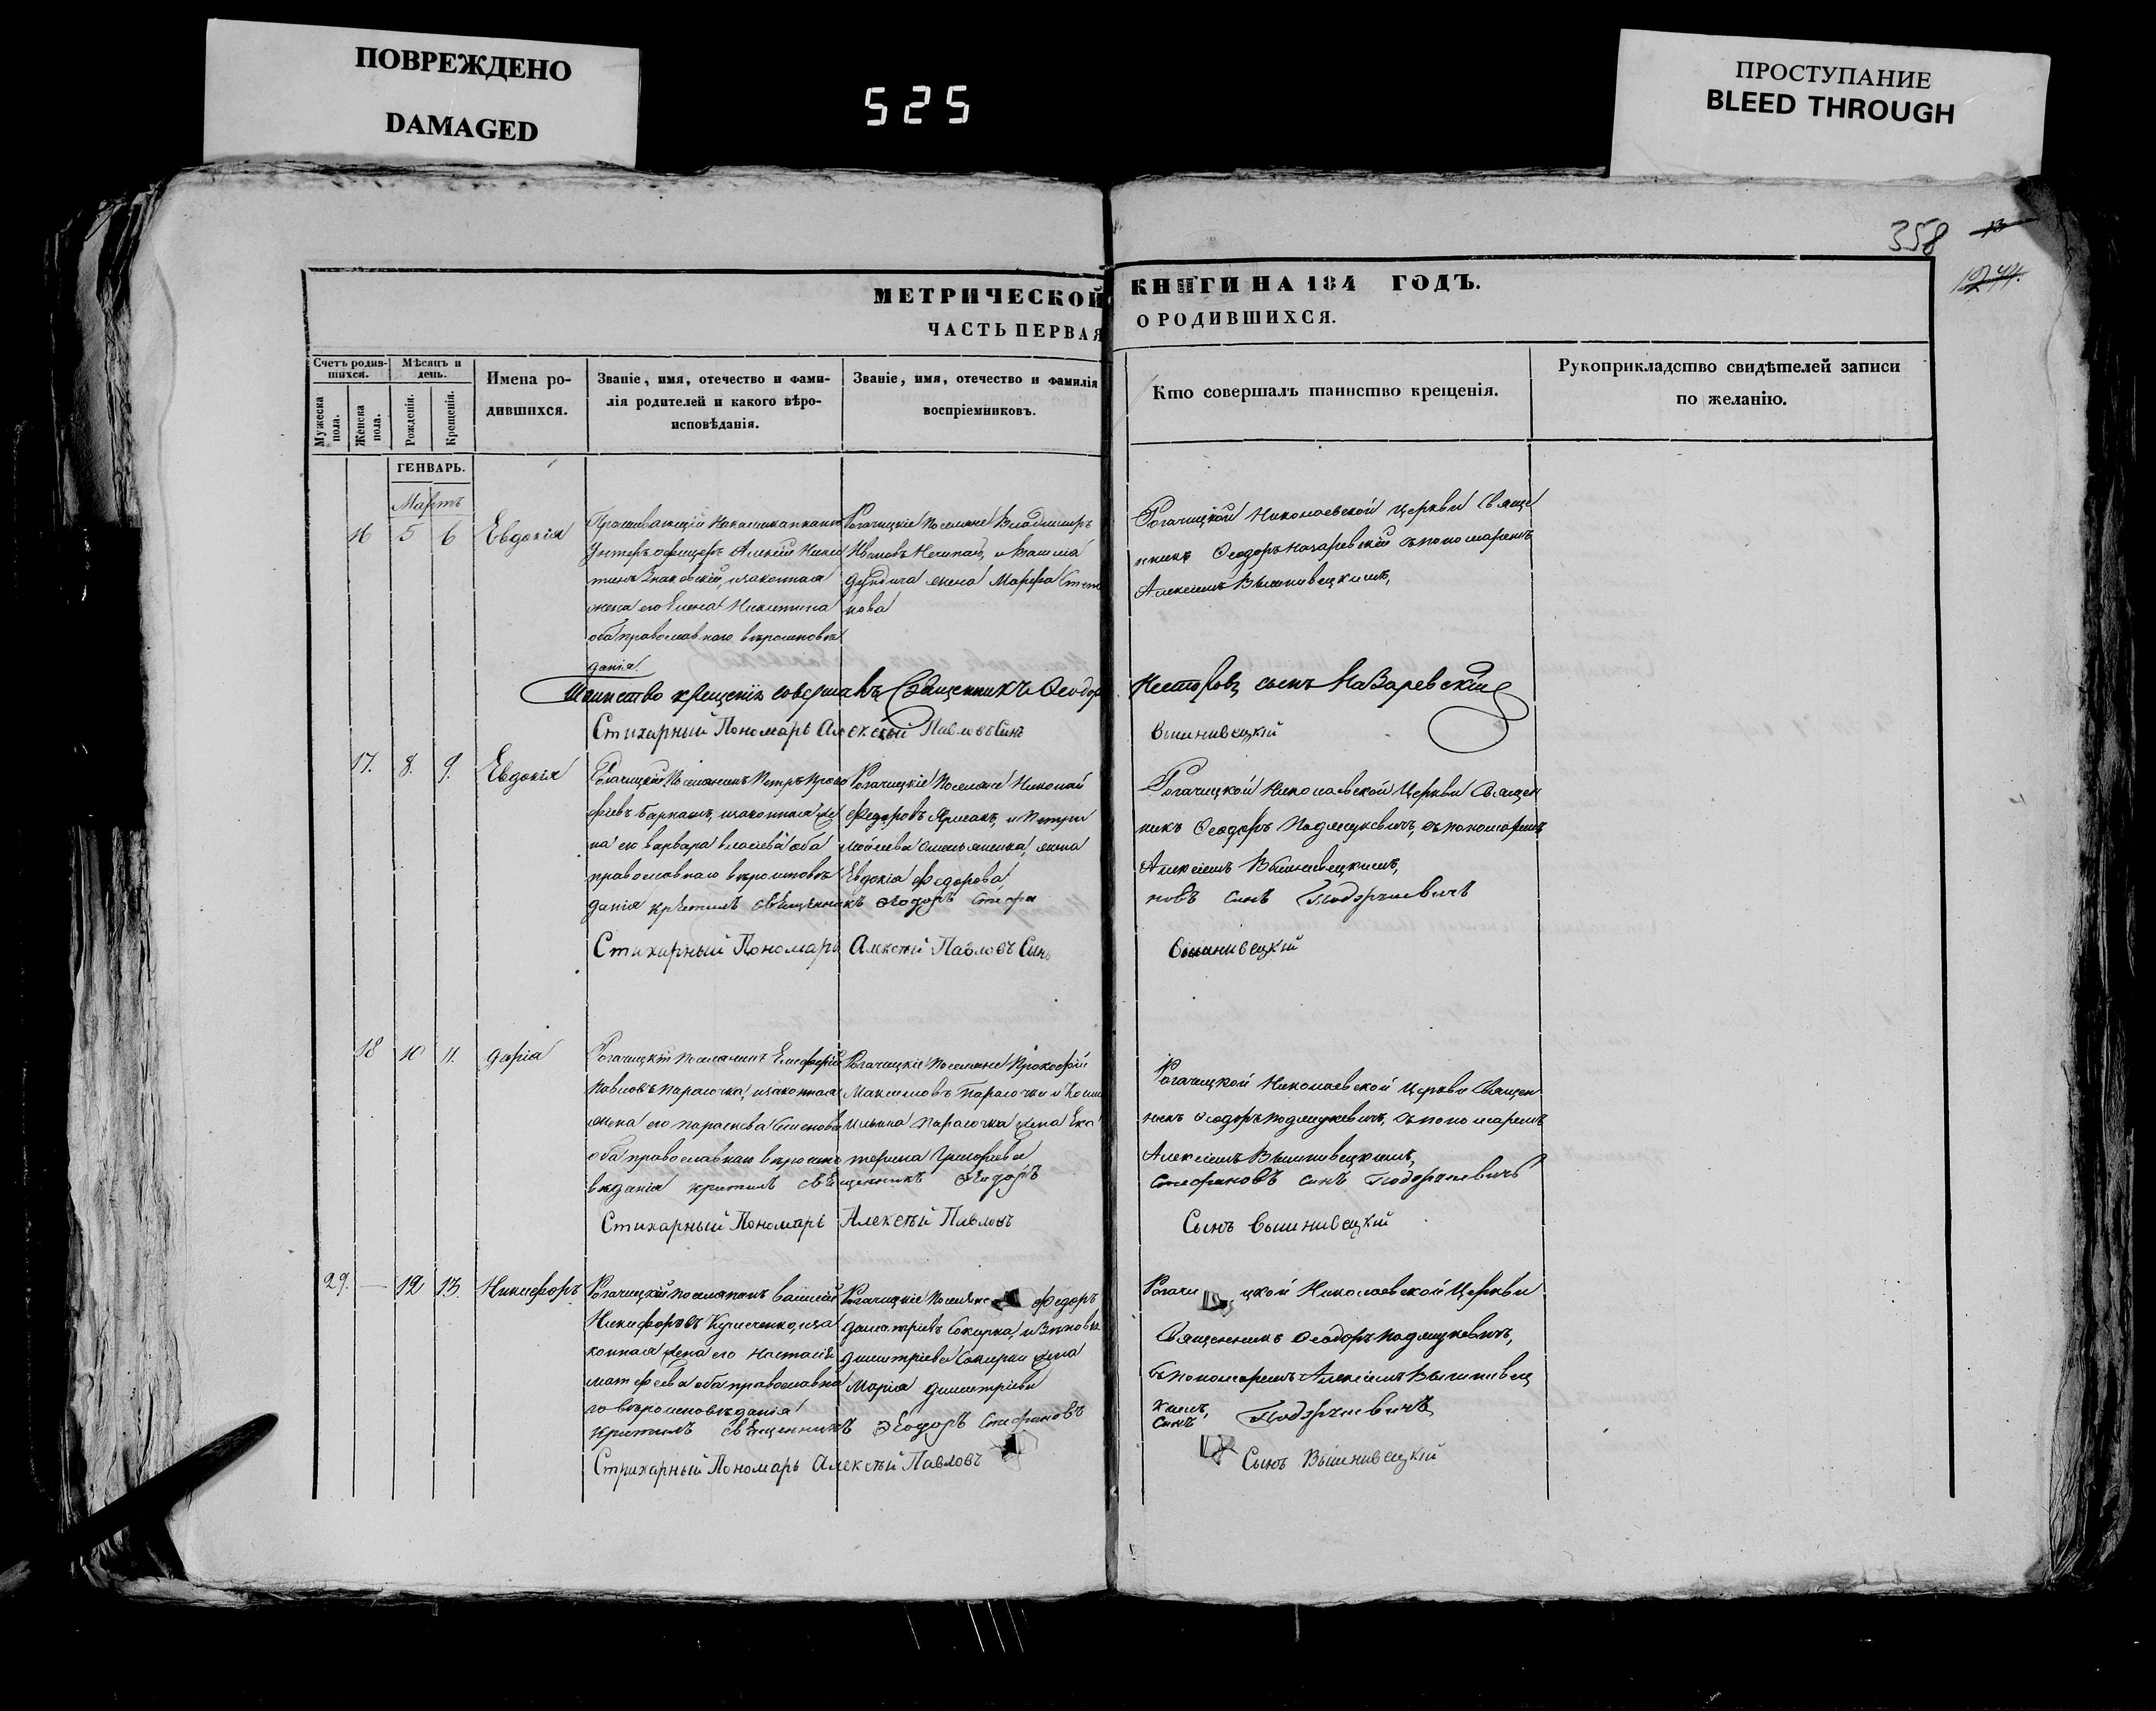 ПОВРЕЖДЕНО
DAMAGED
525
ПРОСТУПАНИЕ
BLEED THROUGH
358
МЕТРИЧЕСКОЙ КНИГИ НА 184 ГОДЪ.
ЧАСТЬ ПЕРВАЯ О РОДИВШИХСЯ.
Счетъ родив-
шихся.
Мѣсяцъ и
день.
Мужеска
пола.
Женска
пола.
Рожденія.
Крещенія.
Имена ро-
дившихся.
Званіе, имя, отечество и фами-
лія родителей и какого вѣро-
исповѣданія.
Званіе, имя, отечество и фамилія
воспріемниковъ.
Кто совершалъ таинство крещенія.
Рукоприкладство свидѣтелей записи
по желанію.
ГЕНВАРЬ.
Мартъ
16 5 6 Евдокія
Унтеръ офицеръ Алексѣй Ники
тинъ законная
жена его Елена Никитина
оба православнаго вѣроисповѣ
данія
Рогачицкіе Поселяне Владимиръ
Ивановъ
жена Марфа Степа
нова
Рогачицкой Николаевской Церкви Свяще
нникъ Ѳеодоръ Назаревскій съ пономаремъ
Алексіемъ Вышнивецкимъ,
Таинство крещенія совершалъ Священникъ Ѳеодоръ Несторовъ сынъ Назаревскій
Стихарный Пономарь Алексѣй Павловъ Сынъ Вышнивецкій
17. 8. 9. Евдокія
Рогачицкій Поселянинъ Петръ Проко
фіевъ законная же
на его Варвара Власіева оба
православнаго вѣроисповѣ
данія
Рогачицкіе Поселяне Николай
Федоровъ и Петра
жена
Евдокія Федорова
Рогачицкой Николаевской Церкви Священ
никъ Ѳеодоръ съ пономаремъ
Алексіемъ Вышнивецкимъ,
крестилъ священникъ Ѳеодоръ Стефа
новъ синъ
Стихарный Пономарь Алексѣй Павловъ Сынъ Вышнивецкій
18 10 11. Дарія
Рогачицкій Поселянинъ
Павловъ Парасочка, законная
жена его Параскева Семенова
оба православнаго вѣроиспо
вѣданія
Рогачицкіе Поселяне Прокофій
Максимовъ Парасочка и
Парасочка жена Ека
терина Григорьева
Рогачицкой Николаевской Церкви Священ
никъ Ѳеодоръ съ пономаремъ
Алексіемъ Вышнивецкимъ,
крестилъ священникъ Ѳеодоръ Стефановъ синъ
Стихарный Пономарь Алексѣй Павловъ Сынъ Вышнивецкій
29. — 12 13. Никифоръ
Рогачицкій Поселянинъ Василій
Никифоровъ за
конная жена его Настасія
Матфеева оба православна
го вѣроисповѣданія
Рогачицкіе Поселяне Федоръ
Дмитріевъ Сокирка, и
Дмитріева Сокирки жена
Марія Дмитріева
Рогачицкой Николаевской Церкви
Священникъ Ѳеодоръ
съ пономаремъ Алексіемъ Вышнивец
кимъ,
крестилъ священникъ Ѳеодоръ Стефановъ синъ
Стихарный Пономарь Алексѣй Павловъ Сынъ Вышнивецкій